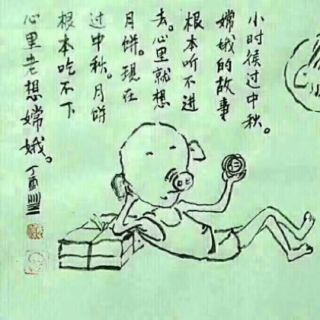 小时候过中秋。
嫦娥的故事
根本听不进
去。心里就想
月饼。现在
过中秋。月饼
根本吃不下
心里老想嫦娥。丁酉